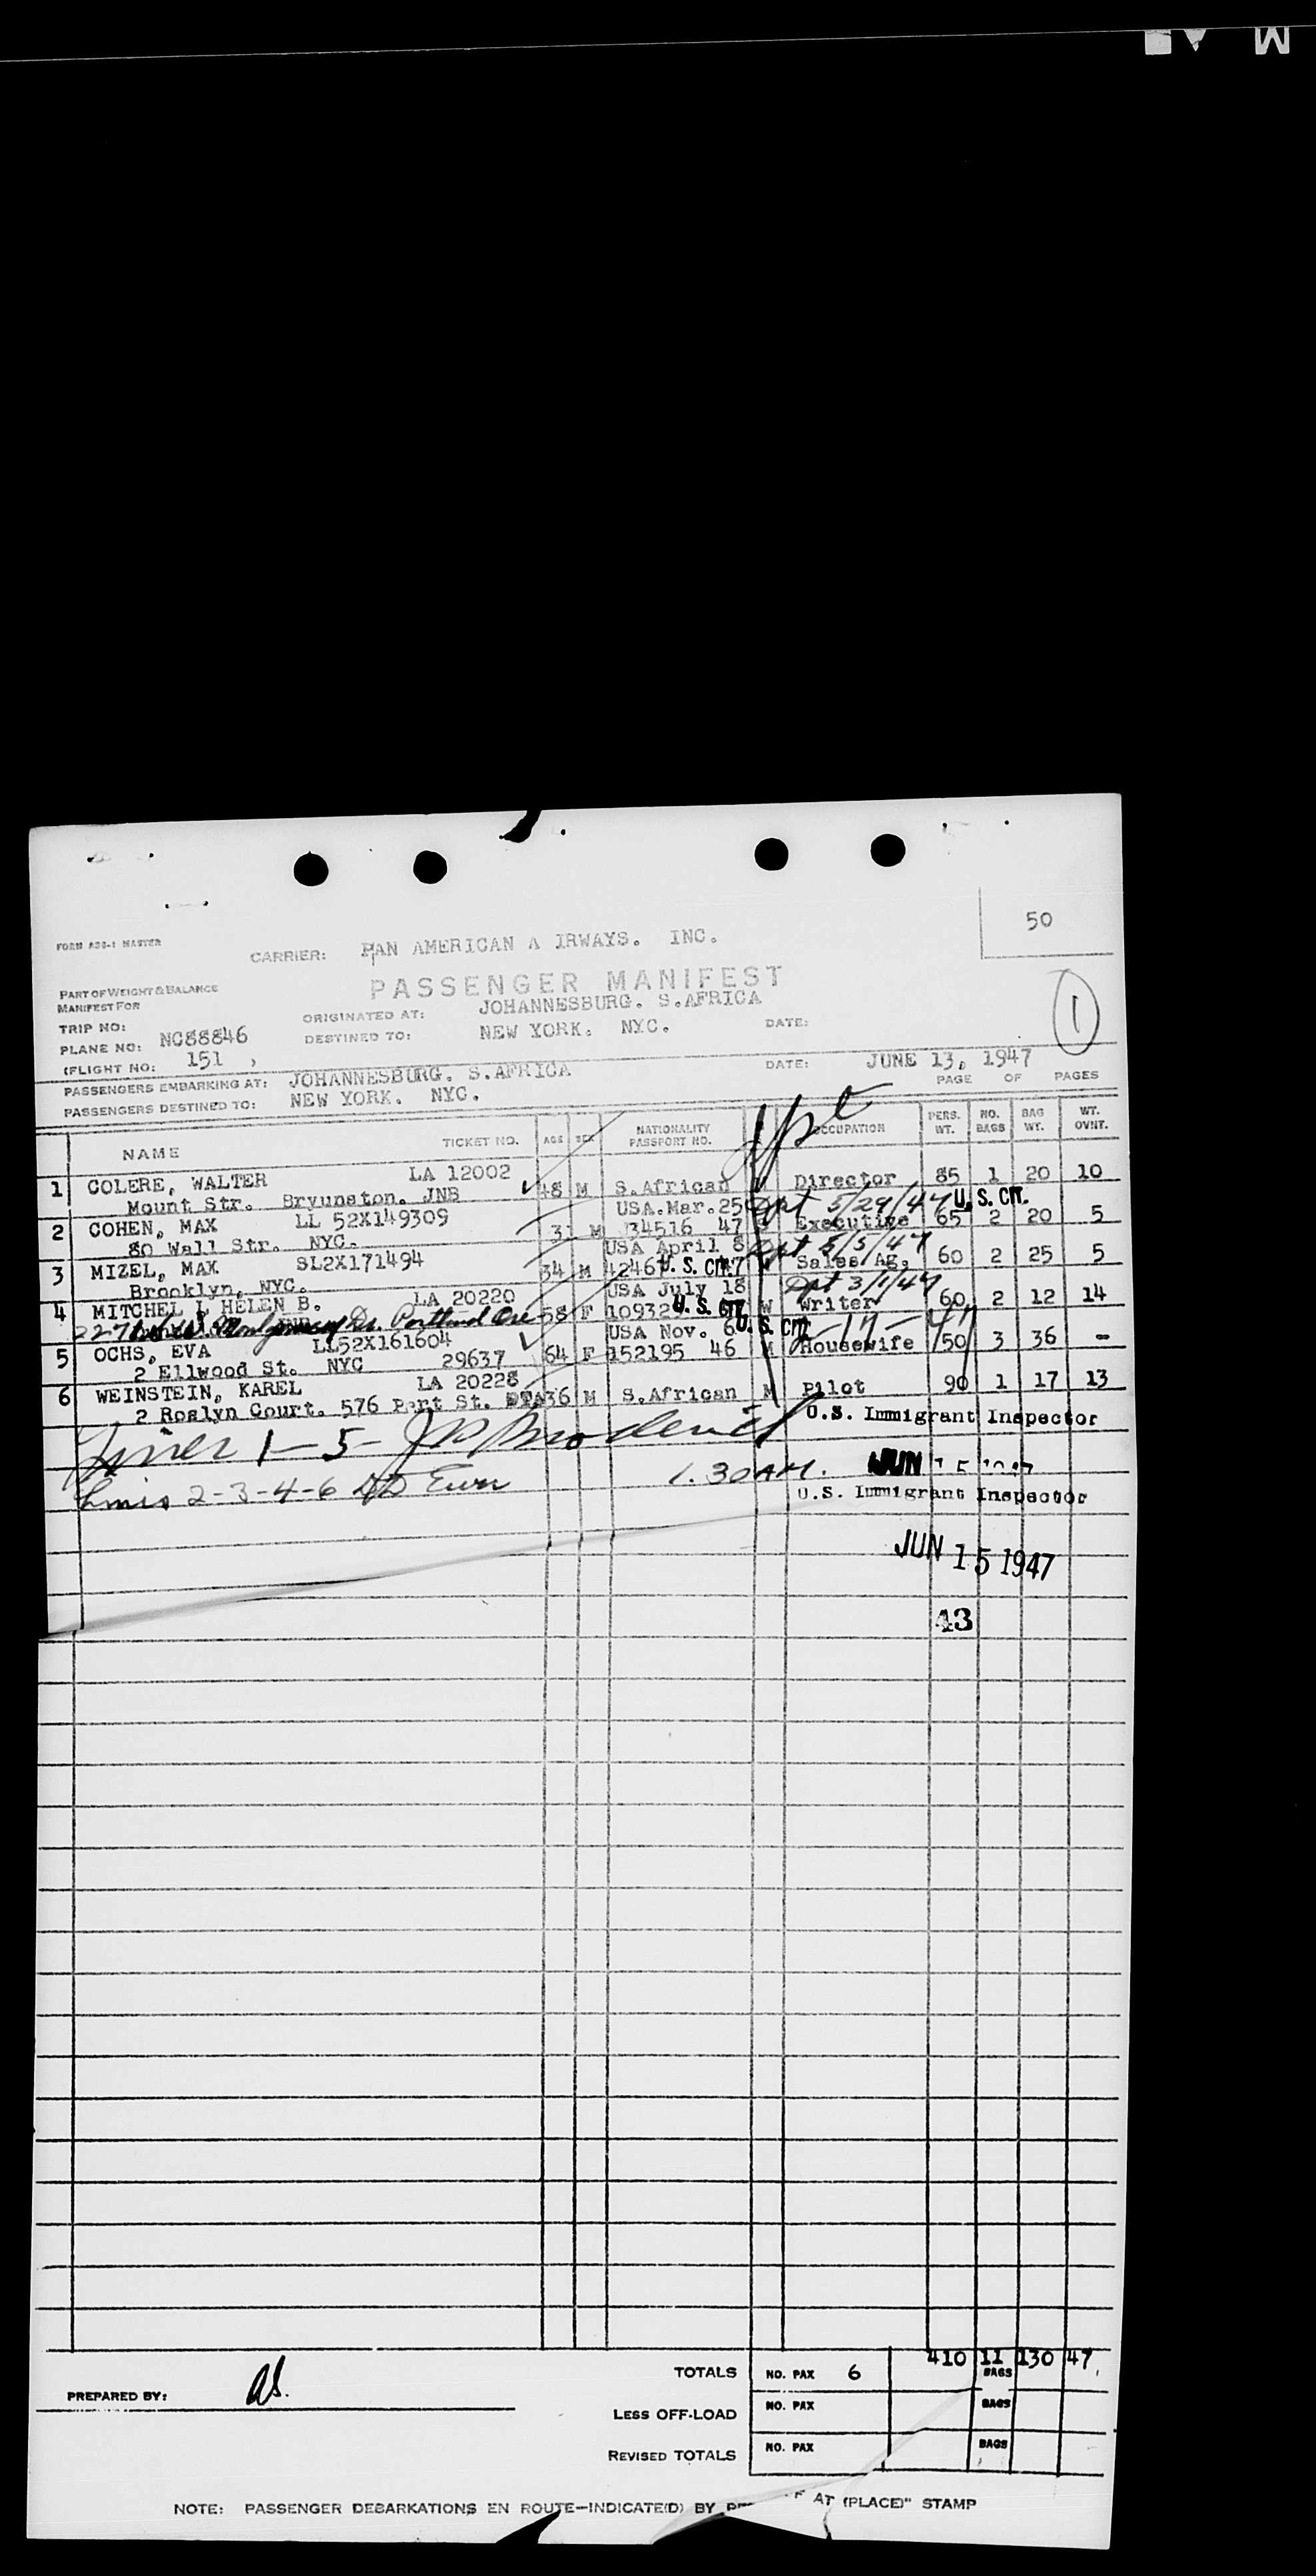 M
50
FORM ADD-1 MASTER
CARRIER: PAN AMERICAN A IRWAYS. INC.
PASSENGER MANIFEST
PART OF WEIGHT & BALANCE
MANIFEST FOR
ORIGINATED AT: JOHANNESBURG. S.AFRICA
1
TRIP NO:
DESTINED TO: NEW YORK. NYC. DATE:
PLANE NO: NC88846
(FLIGHT NO: 151 )
PASSENGERS EMBARKING AT: JOHANNESBURG. S.AFRICA DATE: JUNE 13, 1947
PASSENGERS DESTINED TO: NEW YORK. NYC. PAGE OF PAGES
NAME TICKET NO. AGE SEX NATIONALITY PASSPORT NO. OCCUPATION PERS. WT. NO. BAGS BAG WT. WT. OVNT.
1 COLERE, WALTER LA 12002 48 M S.African Director 85 1 20 10
Mount Str. Bryunston. JNB
2 COHEN, MAX LL 52X149309 31 M USA.Mar.25 134516 47 Dpt 5/29/47 U. S. CIT. Executive 65 2 20 5
80 Wall Str. NYC.
3 MIZEL, MAX SL2X171494 34 M USA April 8 U. S. CIT. Dpt 5/5/47 Sales Ag. 60 2 25 5
Brooklyn, NYC.
4 MITCHEL L HELEN B. LA 20220 58 F USA July 18 10932 U. S. CIT. W Dpt 3/1/47 Writer 60 2 12 14
Montgomery Dr. Portland Ore
5 OCHS, EVA LL52X161604 64 F USA Nov. 6 152195 46 U. S. CIT. M Housewife 50 3 36 -
2 Ellwood St. NYC 29637
6 WEINSTEIN, KAREL LA 20228 36 M S.African M Pilot 90 1 17 13
2 Roslyn Court. 576 Part St.
U.S. Immigrant Inspector
1-5-
1.30AM. JUN
2-3-4-6
U.S. Immigrant Inspector
JUN 15 1947
43
410 11 130 47
TOTALS NO. PAX 6 BAGS
PREPARED BY:
LESS OFF-LOAD NO. PAX BAGS
REVISED TOTALS NO. PAX BAGS
NOTE: PASSENGER DEBARKATIONS EN ROUTE—INDICATE(D) BY AT (PLACE)" STAMP